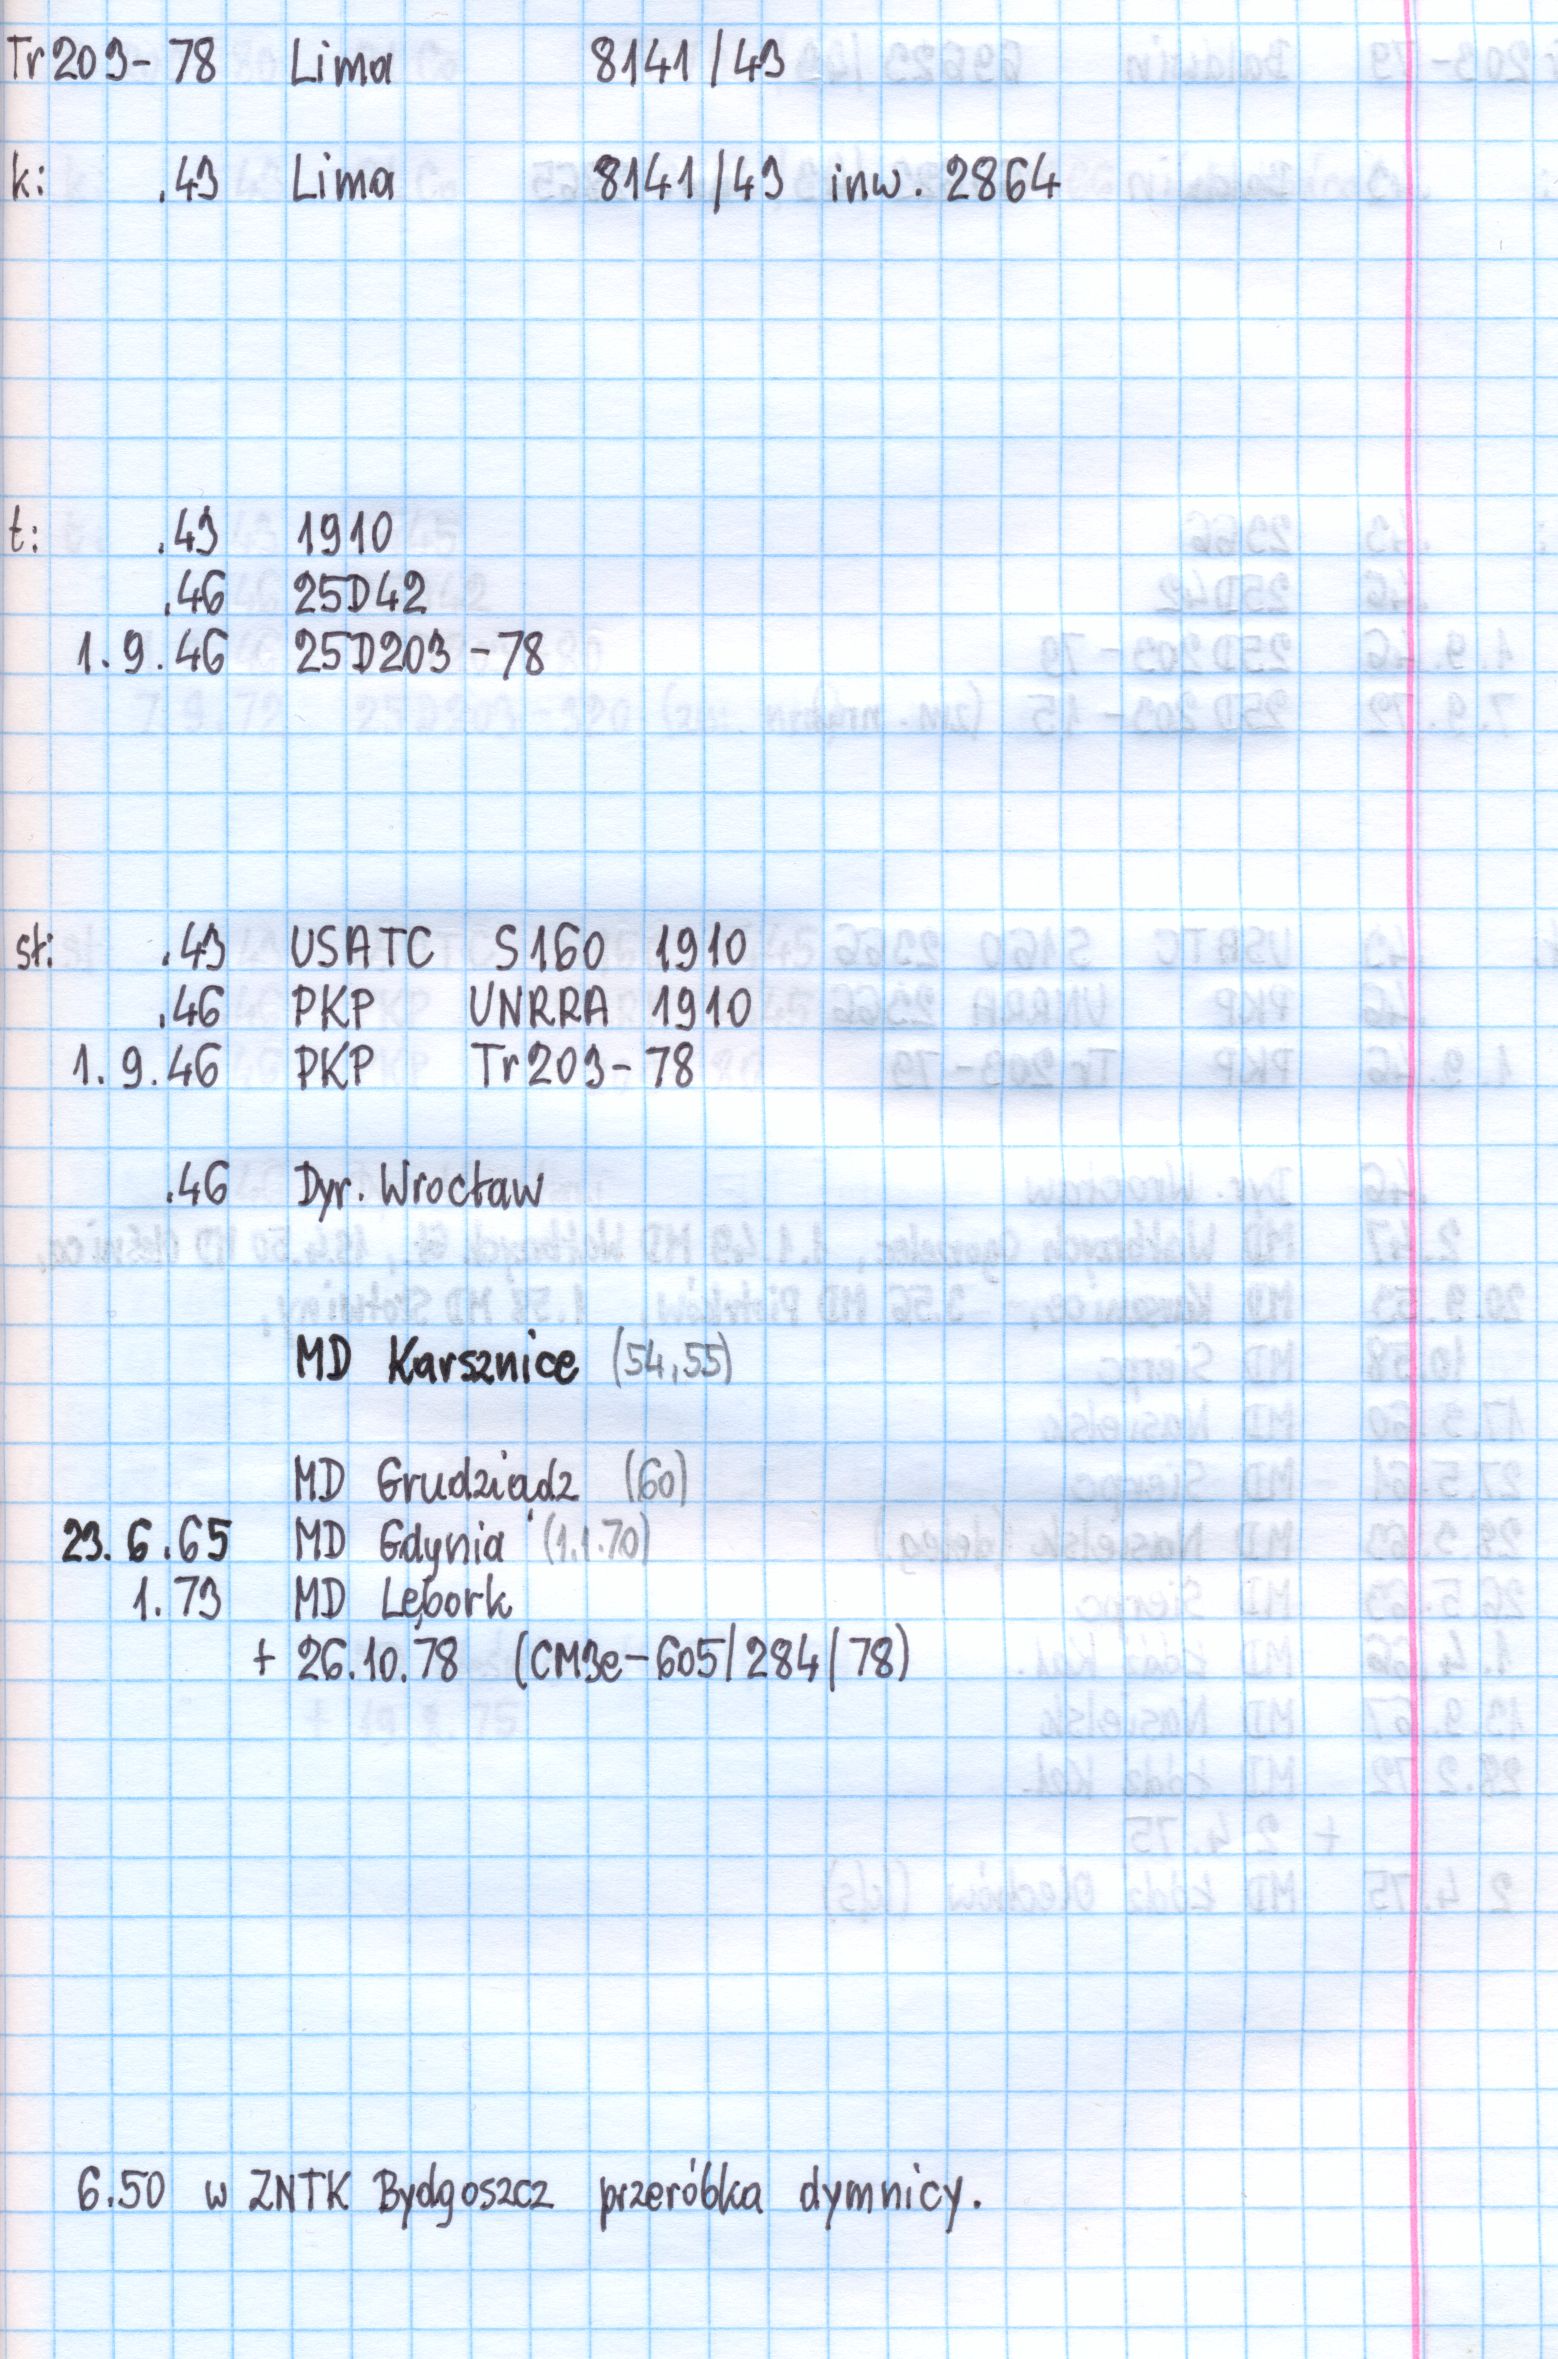 Tr203-78 Lima 8141/43
k: .43 Lima 8141/43 inw. 2864
t: .43 1910
.46 25D42
1.9.46 25D203-78
st: .43 USATC S160 1910
.46 PKP UNRRA 1910
1.9.46 PKP Tr203-78
.46 Dyr. Wrocław
MD Karsznice (54,55)
MD Grudziądz (60)
23.6.65 MD Gdynia (1.1.70)
1.73 MD Lębork
+ 26.10.78 (CM3e-605/284/78)
6.50 w ZNTK Bydgoszcz przeróbka dymnicy.